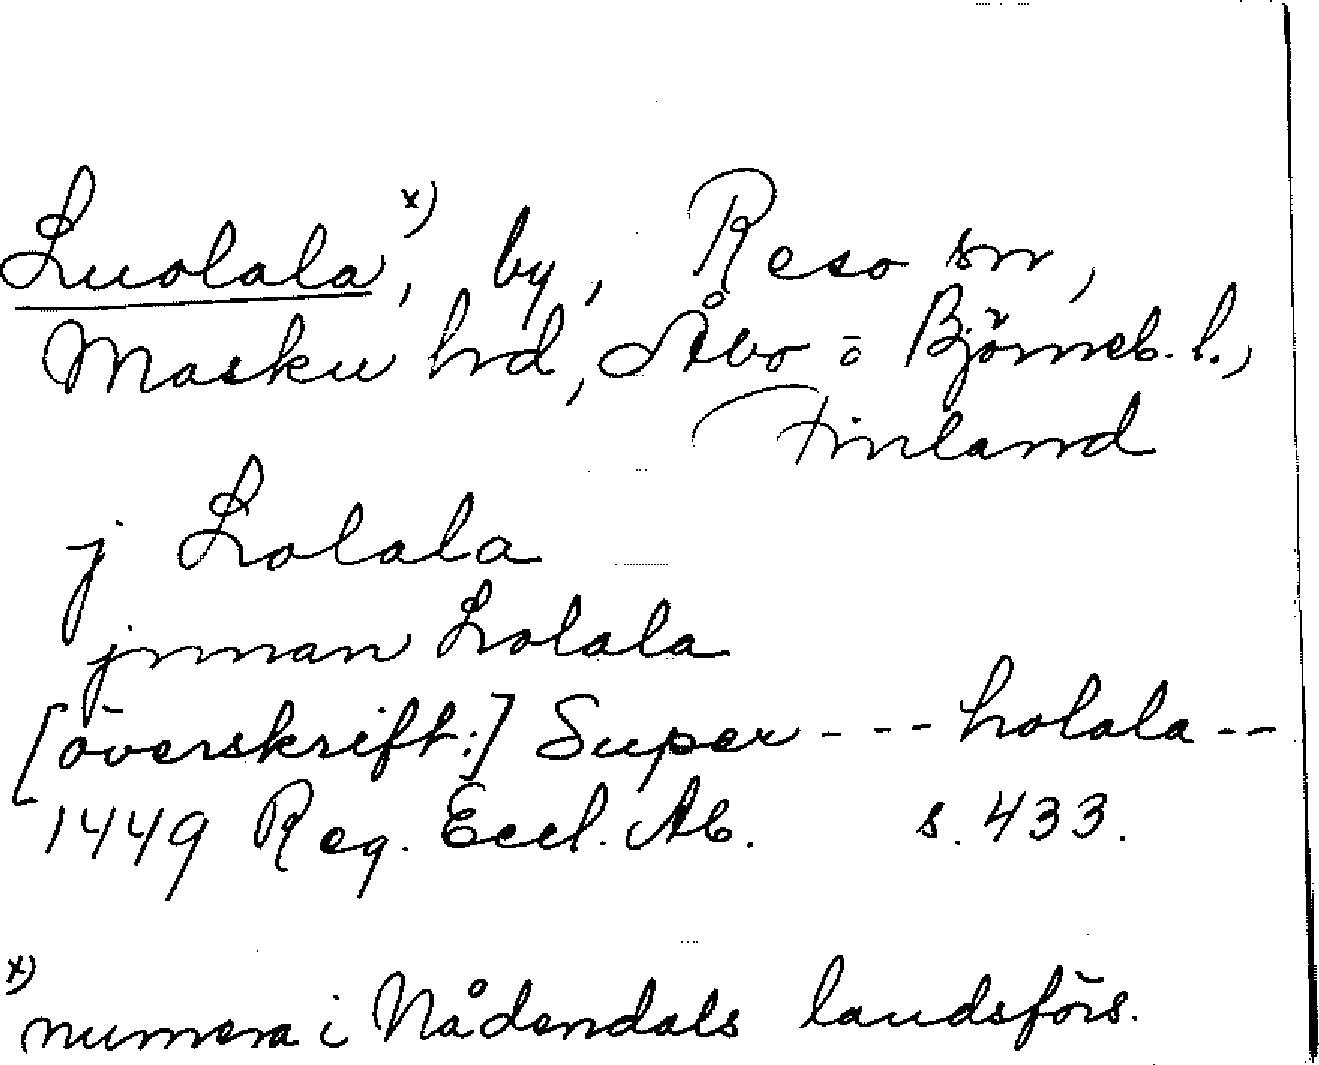 Luolala x), by, Reso sn,
Masku hd, Åbo o Björneb. l.,
Finland
j Lolala
jnnan Lolala
[överskrift:] Super --- holala --
1449 Reg. Eccl. Ab. s. 433.
x) numera i Nådendals landsförs.